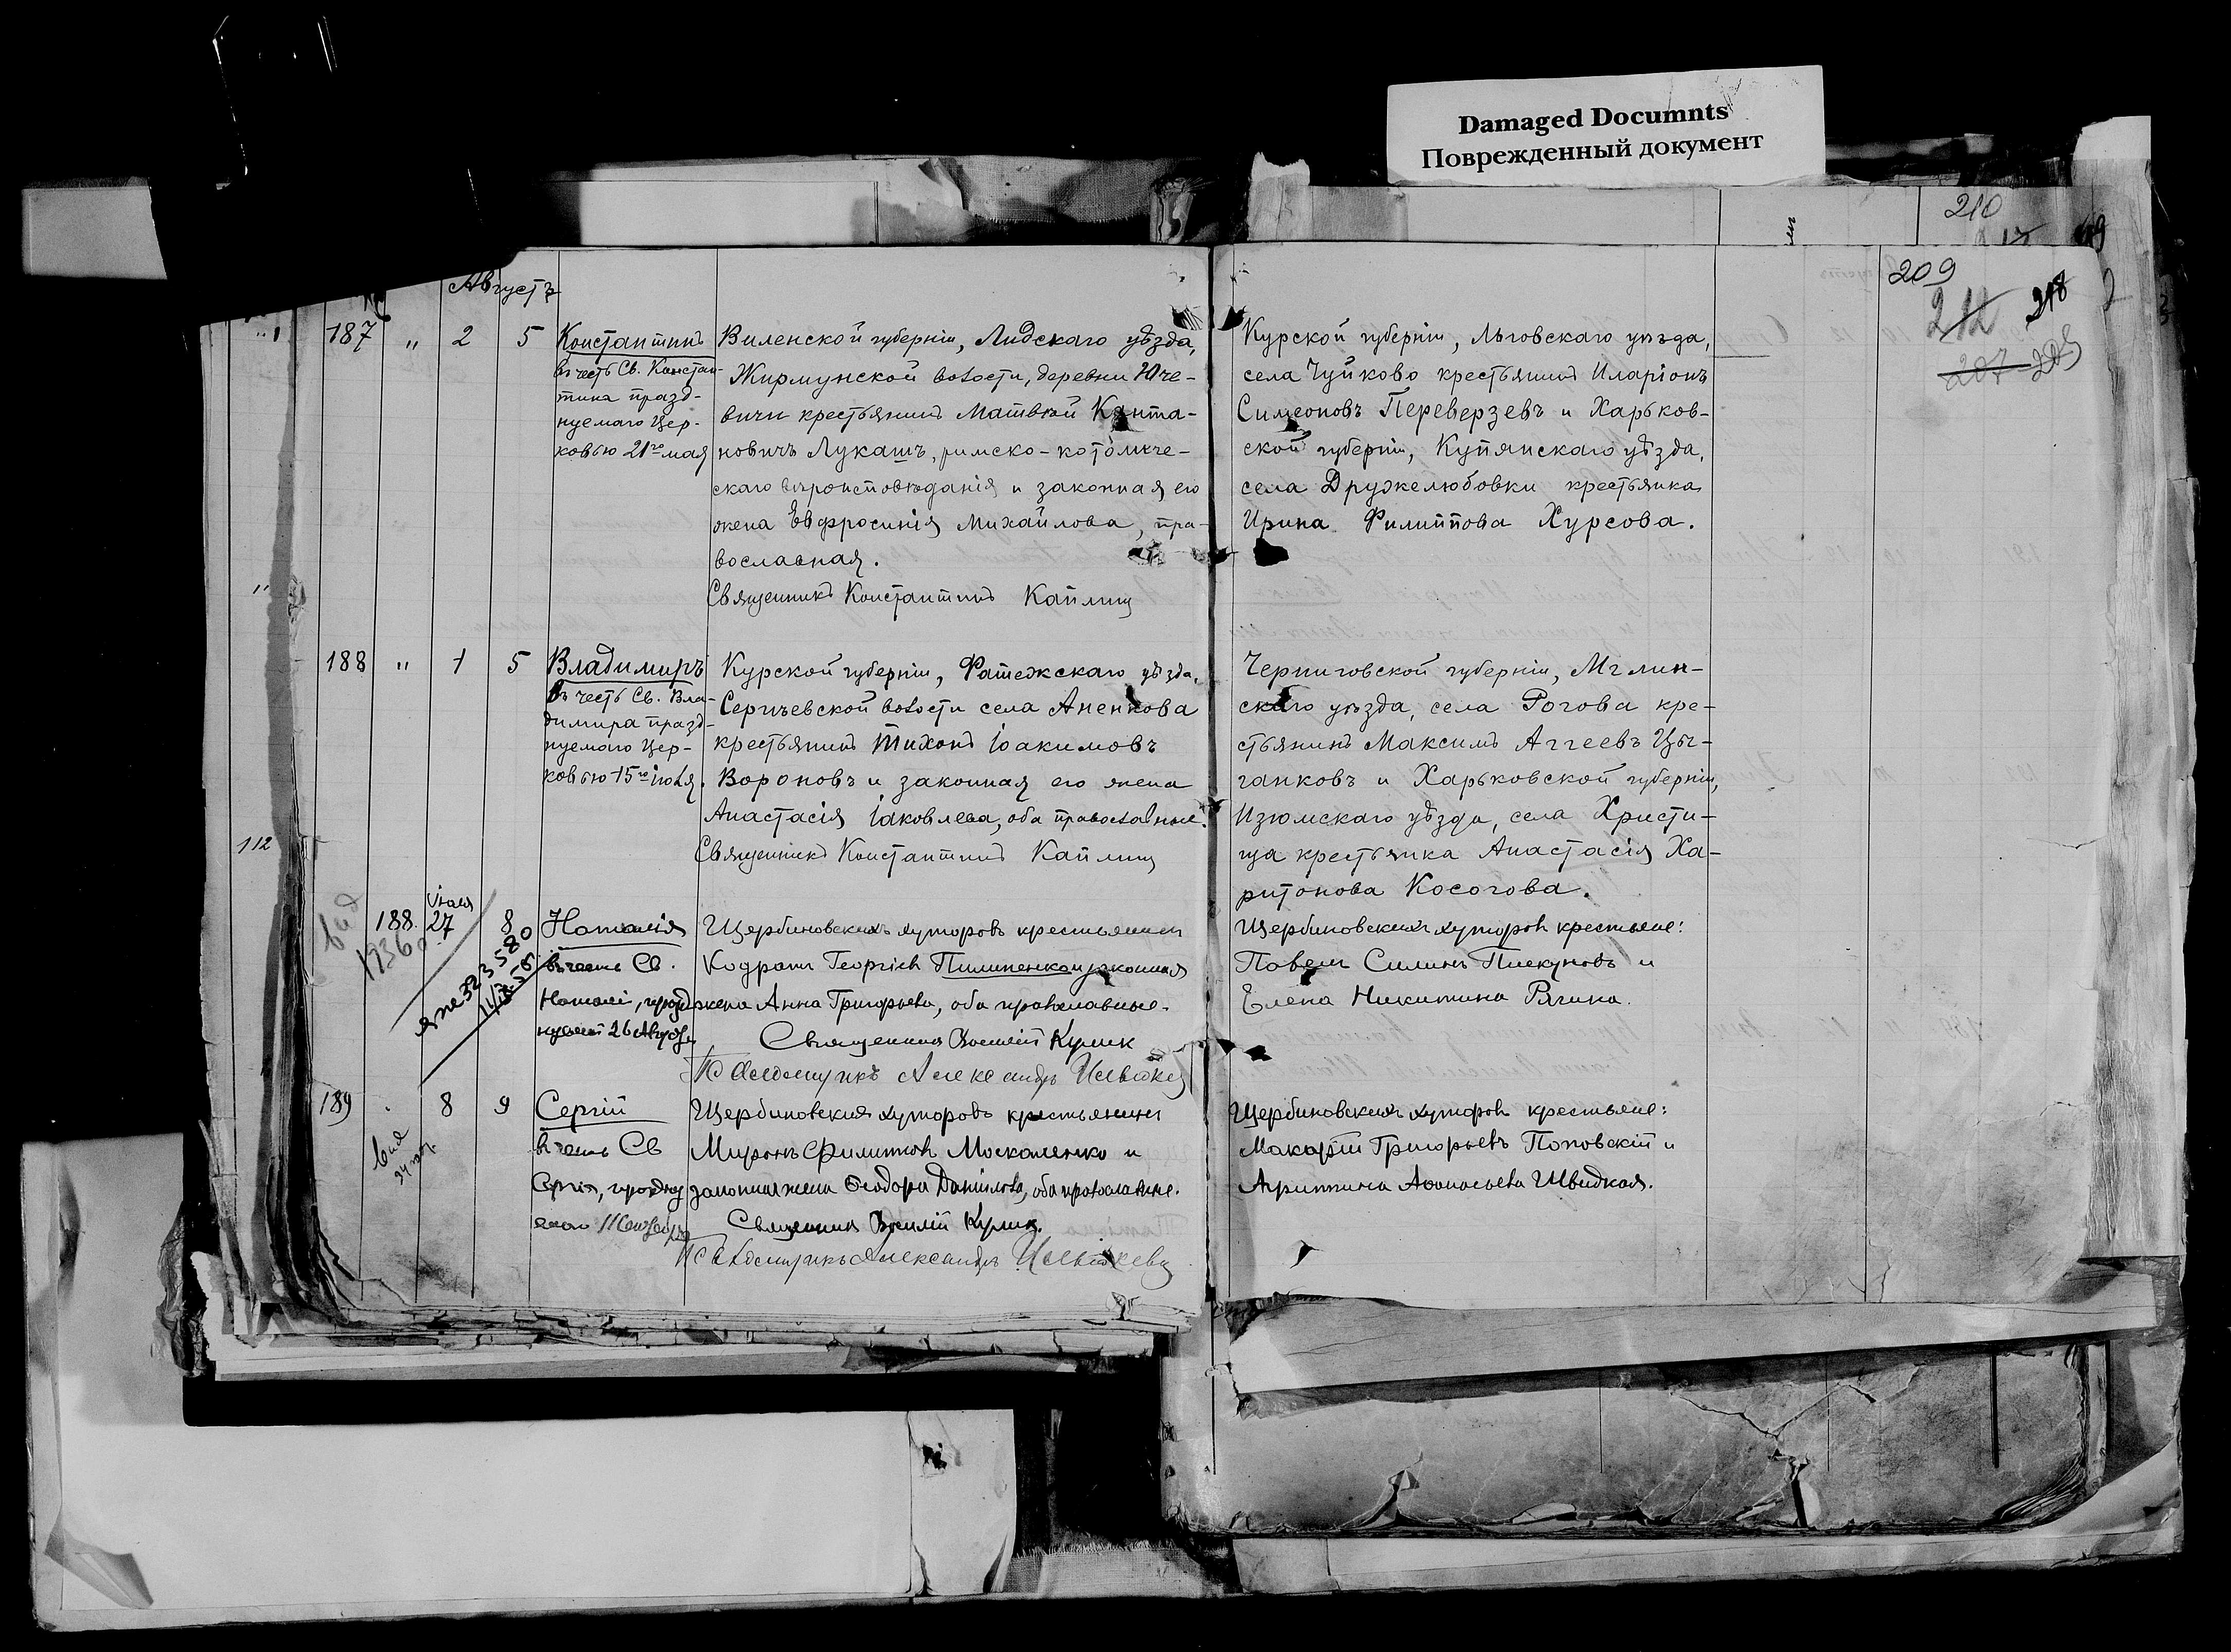 Damaged Documnts
Поврежденный документ
210
209
212
218
Августъ
187 " 2 5
Константинъ
въ честь Св. Констан-
тина празд-
нуемаго Цер-
ковью 21го мая
Виленской губерніи, Лидскаго уѣзда,
Жирмунской волости, деревни Юче-
вичи крестьянинъ Матвѣй Канта-
новичъ Лукашъ, римско-католиче-
скаго вѣроисповѣданія и законная его
жена Евфросинія Михайлова, пра-
вославная.
Священникъ Константинъ Каплинъ
Курской губерніи, Льговскаго уѣзда,
села Чуйково крестьянинъ Иларіонъ
Симеоновъ Переверзевъ и Харьков-
ской губерніи, Купянскаго уѣзда,
села Дружелюбовки крестьянка
Ирина Филиппова Хурсова.
188 " 1 5
Владимиръ
въ честь Св. Вла-
димира празд-
нуемаго Цер-
ковью 15го іюля.
Курской губерніи, Фатежскаго уѣзда,
Сергѣевской волости села Аненкова
крестьянинъ Тихонъ Іоакимовъ
Вороновъ и законная его жена
Анастасія Іаковлева, оба православные.
Священникъ Константинъ Каплинъ
Черниговской губерніи, Мглин-
скаго уѣзда, села Рогова кре-
стьянинъ Максимъ Аггеевъ Цы-
ганковъ и Харьковской губерніи,
Изюмскаго уѣзда, села Христи-
ща крестьянка Анастасія Ха-
ритонова Косогова.
112
вид
1936
188. Іюля 27 8
Наталія
въ честь Св.
Наталіи, празд
нуемой 26 Августа
Щербиновскихъ хуторовъ крестьянинъ
Кодратъ Георгіевъ Пилипенко и законная
жена Анна Григорьева, оба православные.
Священникъ Василій Кулик
Псаломщикъ Александръ
Щербиновскихъ хуторовъ крестьяне:
Павелъ Силинъ Пискуновъ и
Елена Никитина Рягина.
189 8 9
Сергій
въ честь Св
Сергія, праздну
Щербиновскихъ хуторовъ крестьянинъ
Миронъ Филиповъ Москаленко и
законная жена Ѳеодора Даніилова, оба православные.
Священникъ Василій Кулик.
Псаломщикъ Александръ
Щербиновскихъ хуторовъ крестьяне:
Макарій Григорьевъ Поповскій и
Агриппина Аѳанасьева Швидкая.